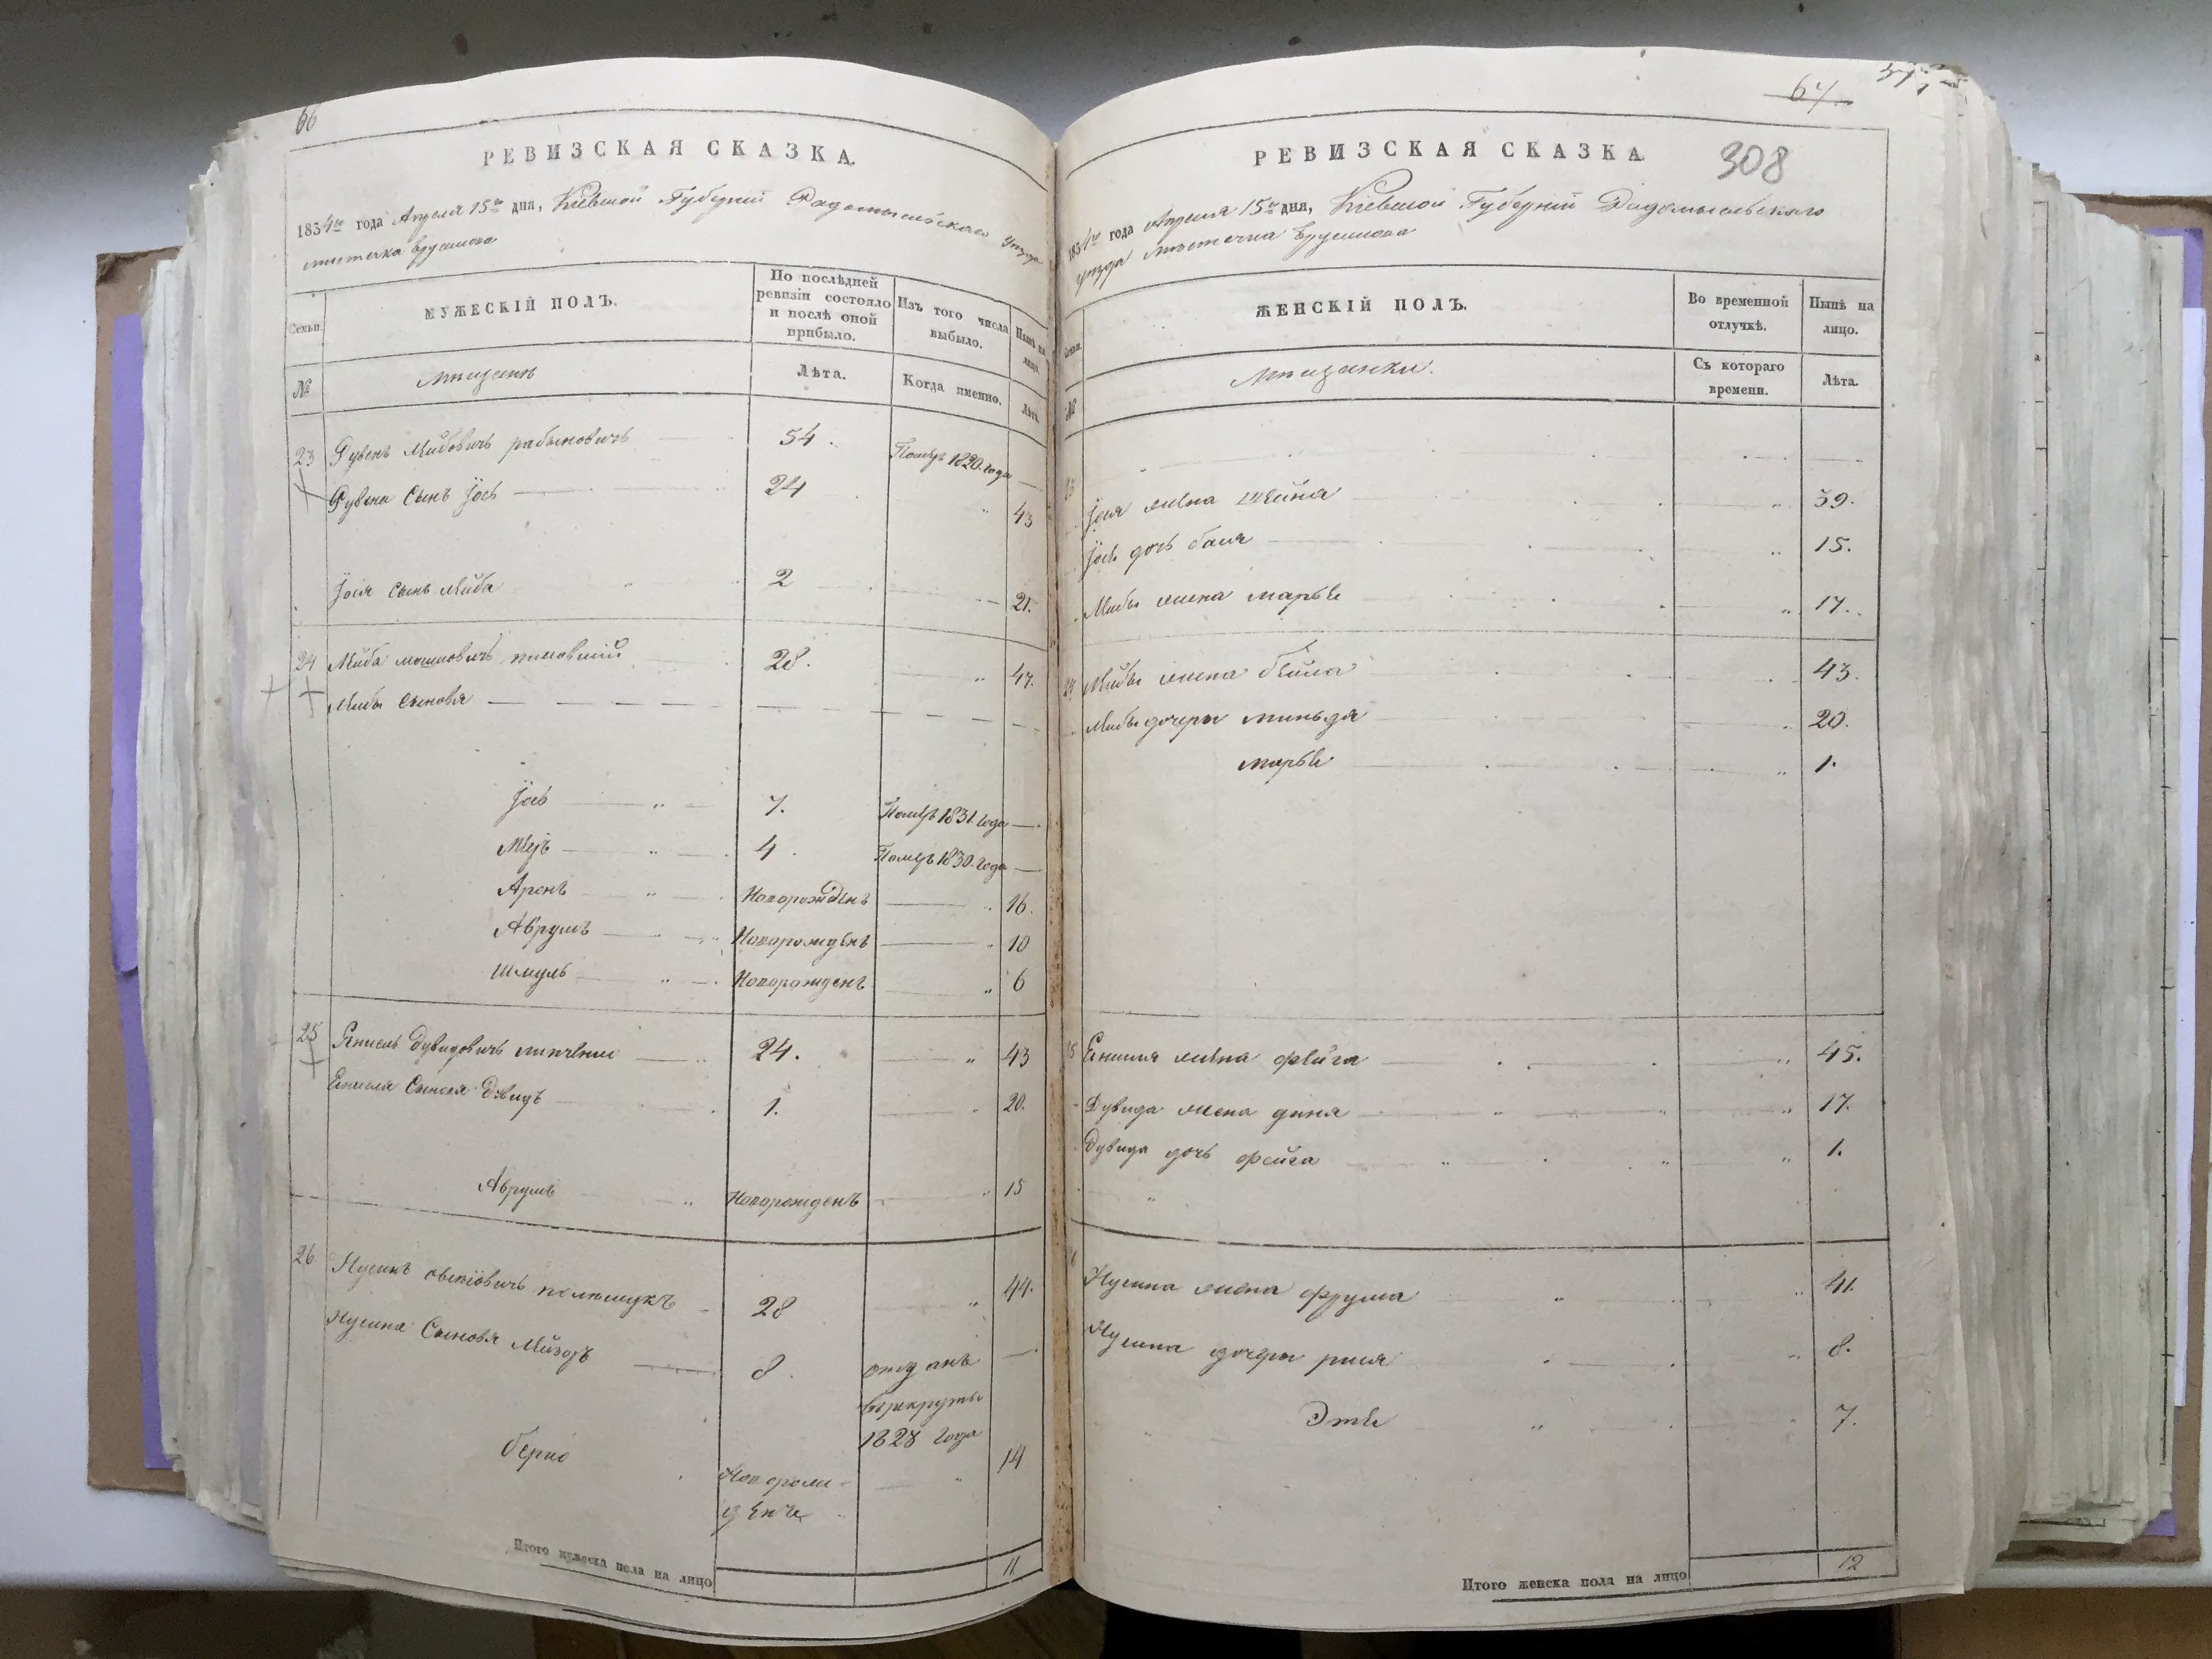 66
РЕВИЗСКАЯ СКАЗКА.
1834го года Апреля 15го дня, Кіевской Губерніи Радомысльскаго уезда
местечка Брусилова
Семьи.
МУЖЕСКІЙ ПОЛЪ.
По послѣдней ревизіи состояло и послѣ оной прибыло.
Изъ того числа выбыло.
Нынѣ на лицо.
№
мещане
Лѣта.
Когда именно.
Лѣта.
23 Рувенъ Лейбовичъ рабыновичъ 54. Померъ 1820. года
Рувена Сынъ Іось 24 43
Іося Сынъ Лейба 2 21.
24 Лейба мошковичъ 28. 47.
Лейбы Сыновя
Іось 7. Померъ 1831. года
Меръ 4. Померъ 1830. года
Аронъ Новорожденъ 16.
Аврумъ Новорожденъ 10
Шмуль Новорожденъ 6
25 Енкель Дувидовичъ 24. 43
Енкеля Сыновя Дувидъ 1. 20.
Аврумъ Новорожденъ 15
26 Нусинъ полищукъ 28 44.
Нусина Сыновя Лейзоръ 8. отданъ
в рекруты
1828 года
берко Новорож-
денъ 14
Итого мужеска пола на лицо 11
67
308
РЕВИЗСКАЯ СКАЗКА.
1834го года Апреля 15го дня, Кіевской Губерніи Радомысльскаго
уезда местечка Брусилова
Семьи.
ЖЕНСКІЙ ПОЛЪ.
Во временной отлучкѣ.
Нынѣ на лицо.
№
Мещанки.
Съ котораго времени.
Лѣта.
23
Іося жена Шейна 39.
Іося дочь бася 15.
Лейбы жена марье 17.
24 Лейбы жена бейла 43.
Лейбы дочери миньдя 20.
марье 1.
25 Енкеля жена фейга 45.
Дувида жена дина 17.
Дувида дочь фейга 1.
6 Нусина жена фрума 41.
Нусина дочери рися 8.
Эте 7.
Итого женска пола на лицо 12